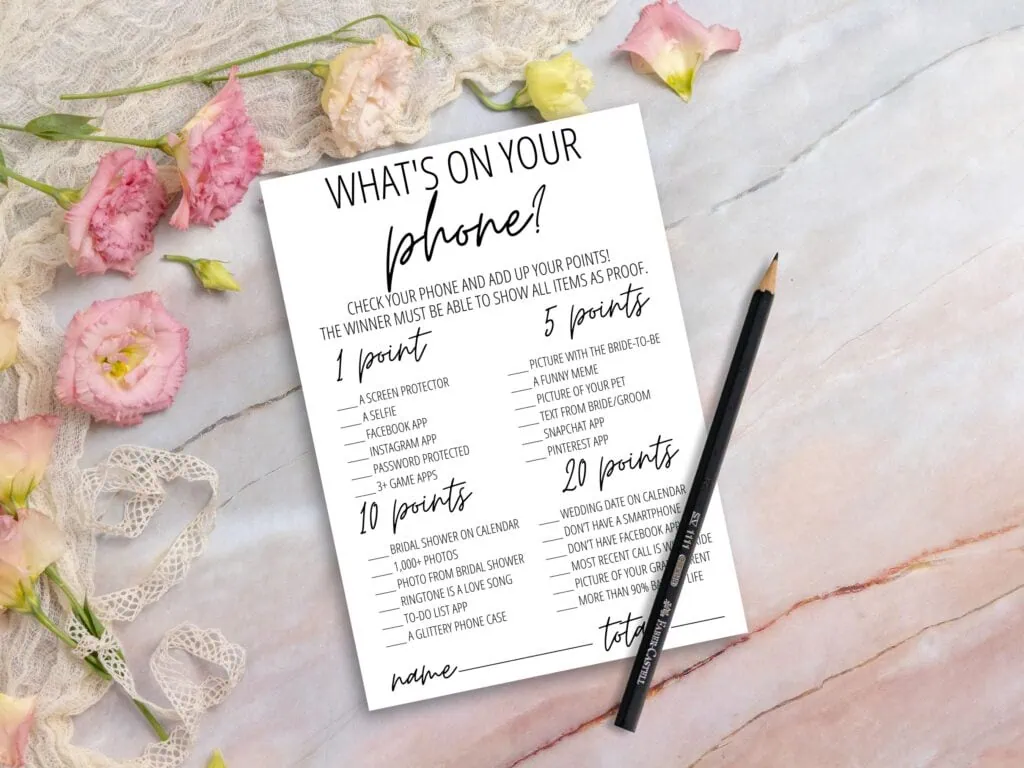 WHAT'S ON YOUR
phone?
CHECK YOUR PHONE AND ADD UP YOUR POINTS!
THE WINNER MUST BE ABLE TO SHOW ALL ITEMS AS PROOF.
1 point
A SCREEN PROTECTOR
A SELFIE
FACEBOOK APP
INSTAGRAM APP
PASSWORD PROTECTED
3+ GAME APPS
5 points
PICTURE WITH THE BRIDE-TO-BE
A FUNNY MEME
PICTURE OF YOUR PET
TEXT FROM BRIDE/GROOM
SNAPCHAT APP
PINTEREST APP
10 points
BRIDAL SHOWER ON CALENDAR
1,000+ PHOTOS
PHOTO FROM BRIDAL SHOWER
RINGTONE IS A LOVE SONG
TO-DO LIST APP
A GLITTERY PHONE CASE
20 points
WEDDING DATE ON CALENDAR
DON'T HAVE A SMARTPHONE
DON'T HAVE FACEBOOK APP
MOST RECENT CALL IS
PICTURE OF YOUR
MORE THAN 90% LIFE
name
FABER-CASTELL